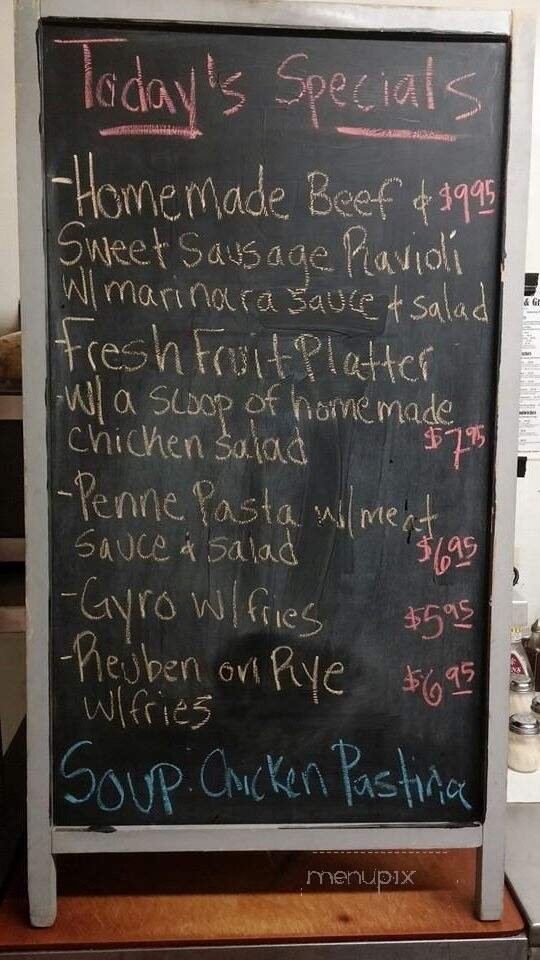 Today's Specials
-Homemade Beef & $9.95
Sweet Sausage Ravioli
w/ marinara sauce & salad
Fresh Fruit Platter
-w/ a scoop of homemade
chicken salad $7.95
-Penne Pasta w/ meat
sauce & salad $6.95
-Gyro w/ fries $5.95
-Reuben on Rye $6.95
w/ fries
Soup: Chicken Pastina
menupix